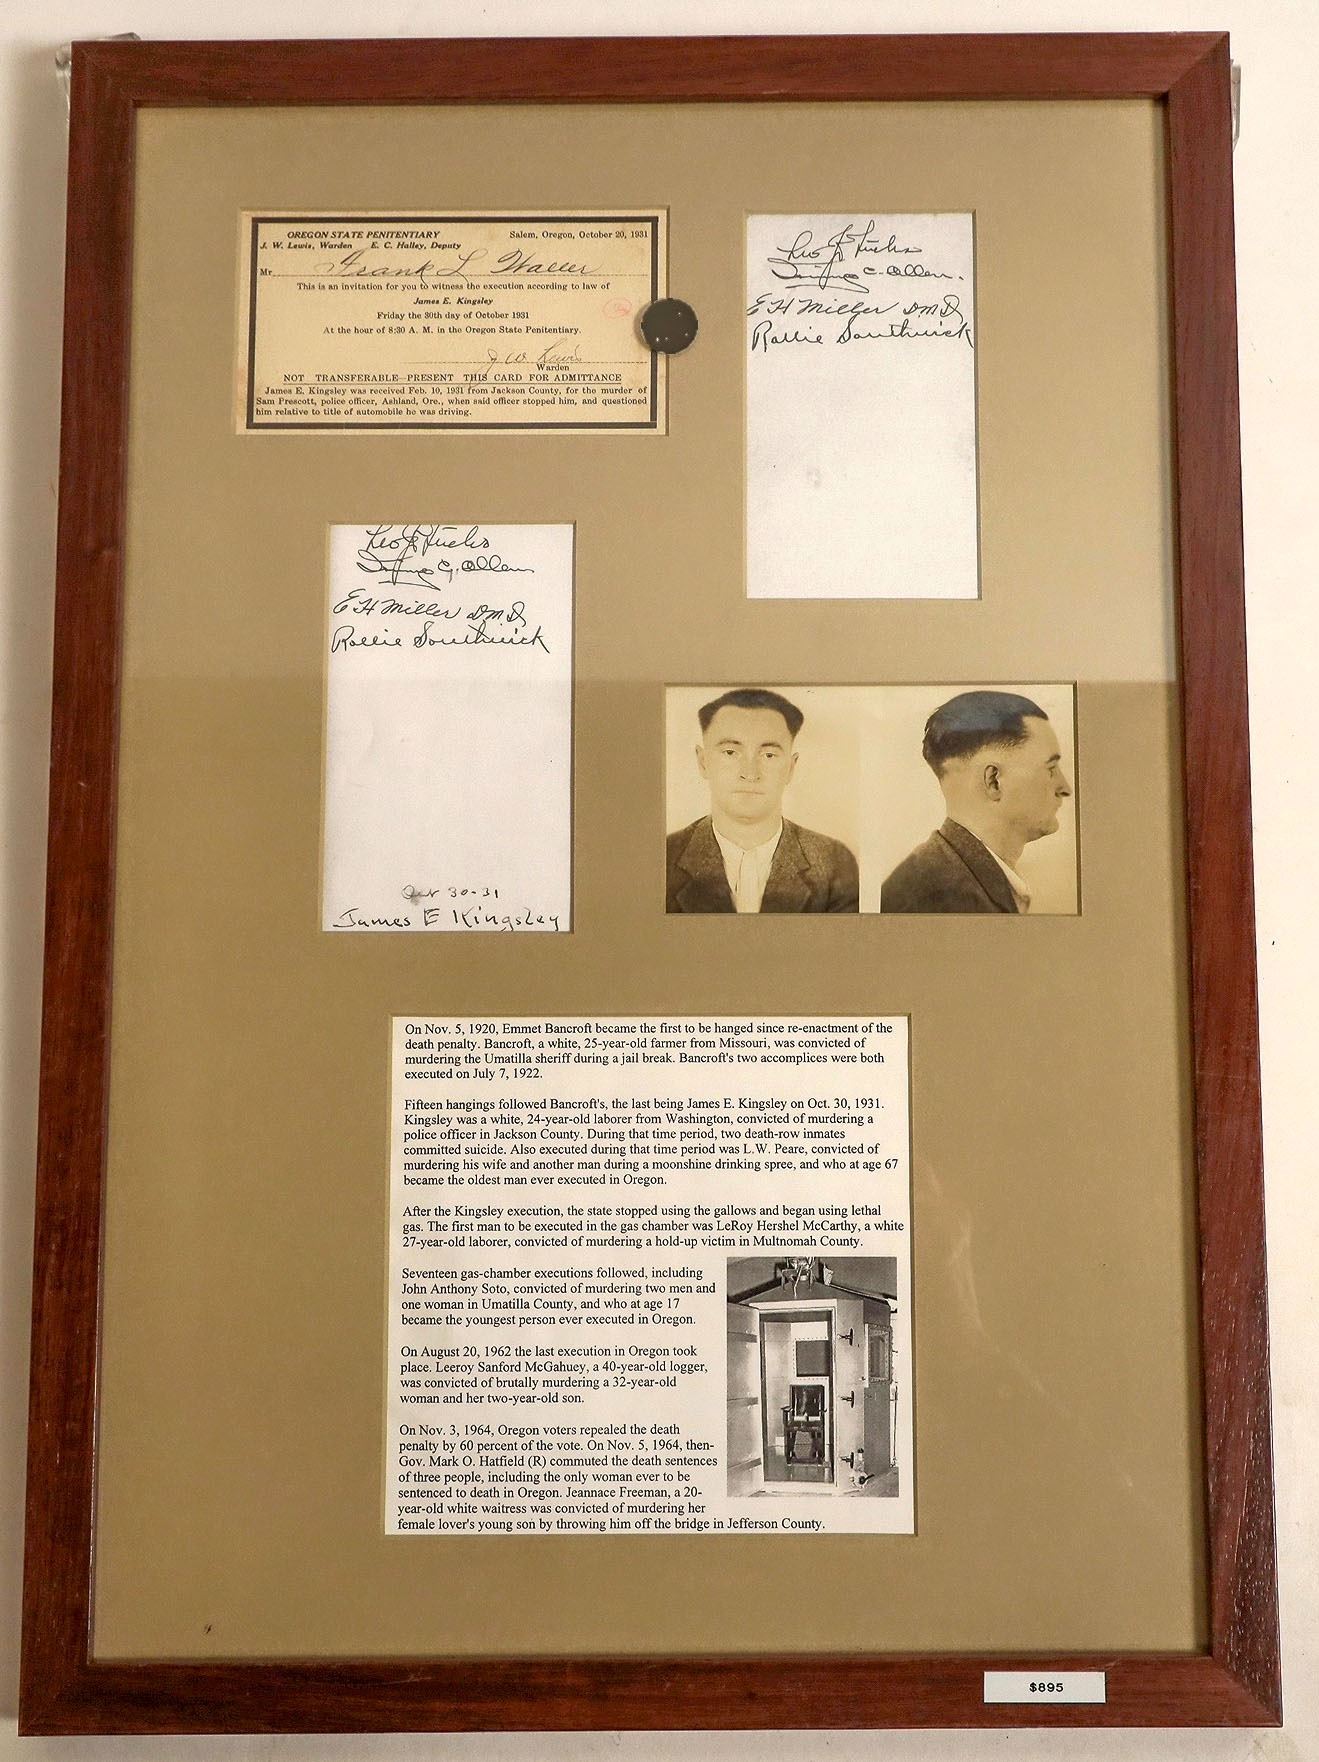 OREGON STATE PENITENTIARY Salem, Oregon, October 20, 1931
J. W. Lewis, Warden E. C. Halley, Deputy
Mr. Frank L Waller
This is an invitation for you to witness the execution according to law of
James E. Kingsley
Friday the 30th day of October 1931
At the hour of 8:30 A. M. in the Oregon State Penitentiary.
J. W. Lewis
Warden
NOT TRANSFERABLE—PRESENT THIS CARD FOR ADMITTANCE
James E. Kingsley was received Feb. 10, 1931 from Jackson County, for the murder of
Sam Prescott, police officer, Ashland, Ore., when said officer stopped him, and questioned
him relative to title of automobile he was driving.
Leo J Fuchs
C. Allen.
E H Miller DMD
Rollie Southwick
Leo J Fuchs
C. Allen
E H Miller DMD
Rollie Southwick
Oct 30-31
James E Kingsley
On Nov. 5, 1920, Emmet Bancroft became the first to be hanged since re-enactment of the
death penalty. Bancroft, a white, 25-year-old farmer from Missouri, was convicted of
murdering the Umatilla sheriff during a jail break. Bancroft's two accomplices were both
executed on July 7, 1922.
Fifteen hangings followed Bancroft's, the last being James E. Kingsley on Oct. 30, 1931.
Kingsley was a white, 24-year-old laborer from Washington, convicted of murdering a
police officer in Jackson County. During that time period, two death-row inmates
committed suicide. Also executed during that time period was L.W. Peare, convicted of
murdering his wife and another man during a moonshine drinking spree, and who at age 67
became the oldest man ever executed in Oregon.
After the Kingsley execution, the state stopped using the gallows and began using lethal
gas. The first man to be executed in the gas chamber was LeRoy Hershel McCarthy, a white
27-year-old laborer, convicted of murdering a hold-up victim in Multnomah County.
Seventeen gas-chamber executions followed, including
John Anthony Soto, convicted of murdering two men and
one woman in Umatilla County, and who at age 17
became the youngest person ever executed in Oregon.
On August 20, 1962 the last execution in Oregon took
place. Leeroy Sanford McGahuey, a 40-year-old logger,
was convicted of brutally murdering a 32-year-old
woman and her two-year-old son.
On Nov. 3, 1964, Oregon voters repealed the death
penalty by 60 percent of the vote. On Nov. 5, 1964, then-
Gov. Mark O. Hatfield (R) commuted the death sentences
of three people, including the only woman ever to be
sentenced to death in Oregon. Jeannace Freeman, a 20-
year-old white waitress was convicted of murdering her
female lover's young son by throwing him off the bridge in Jefferson County.
$895